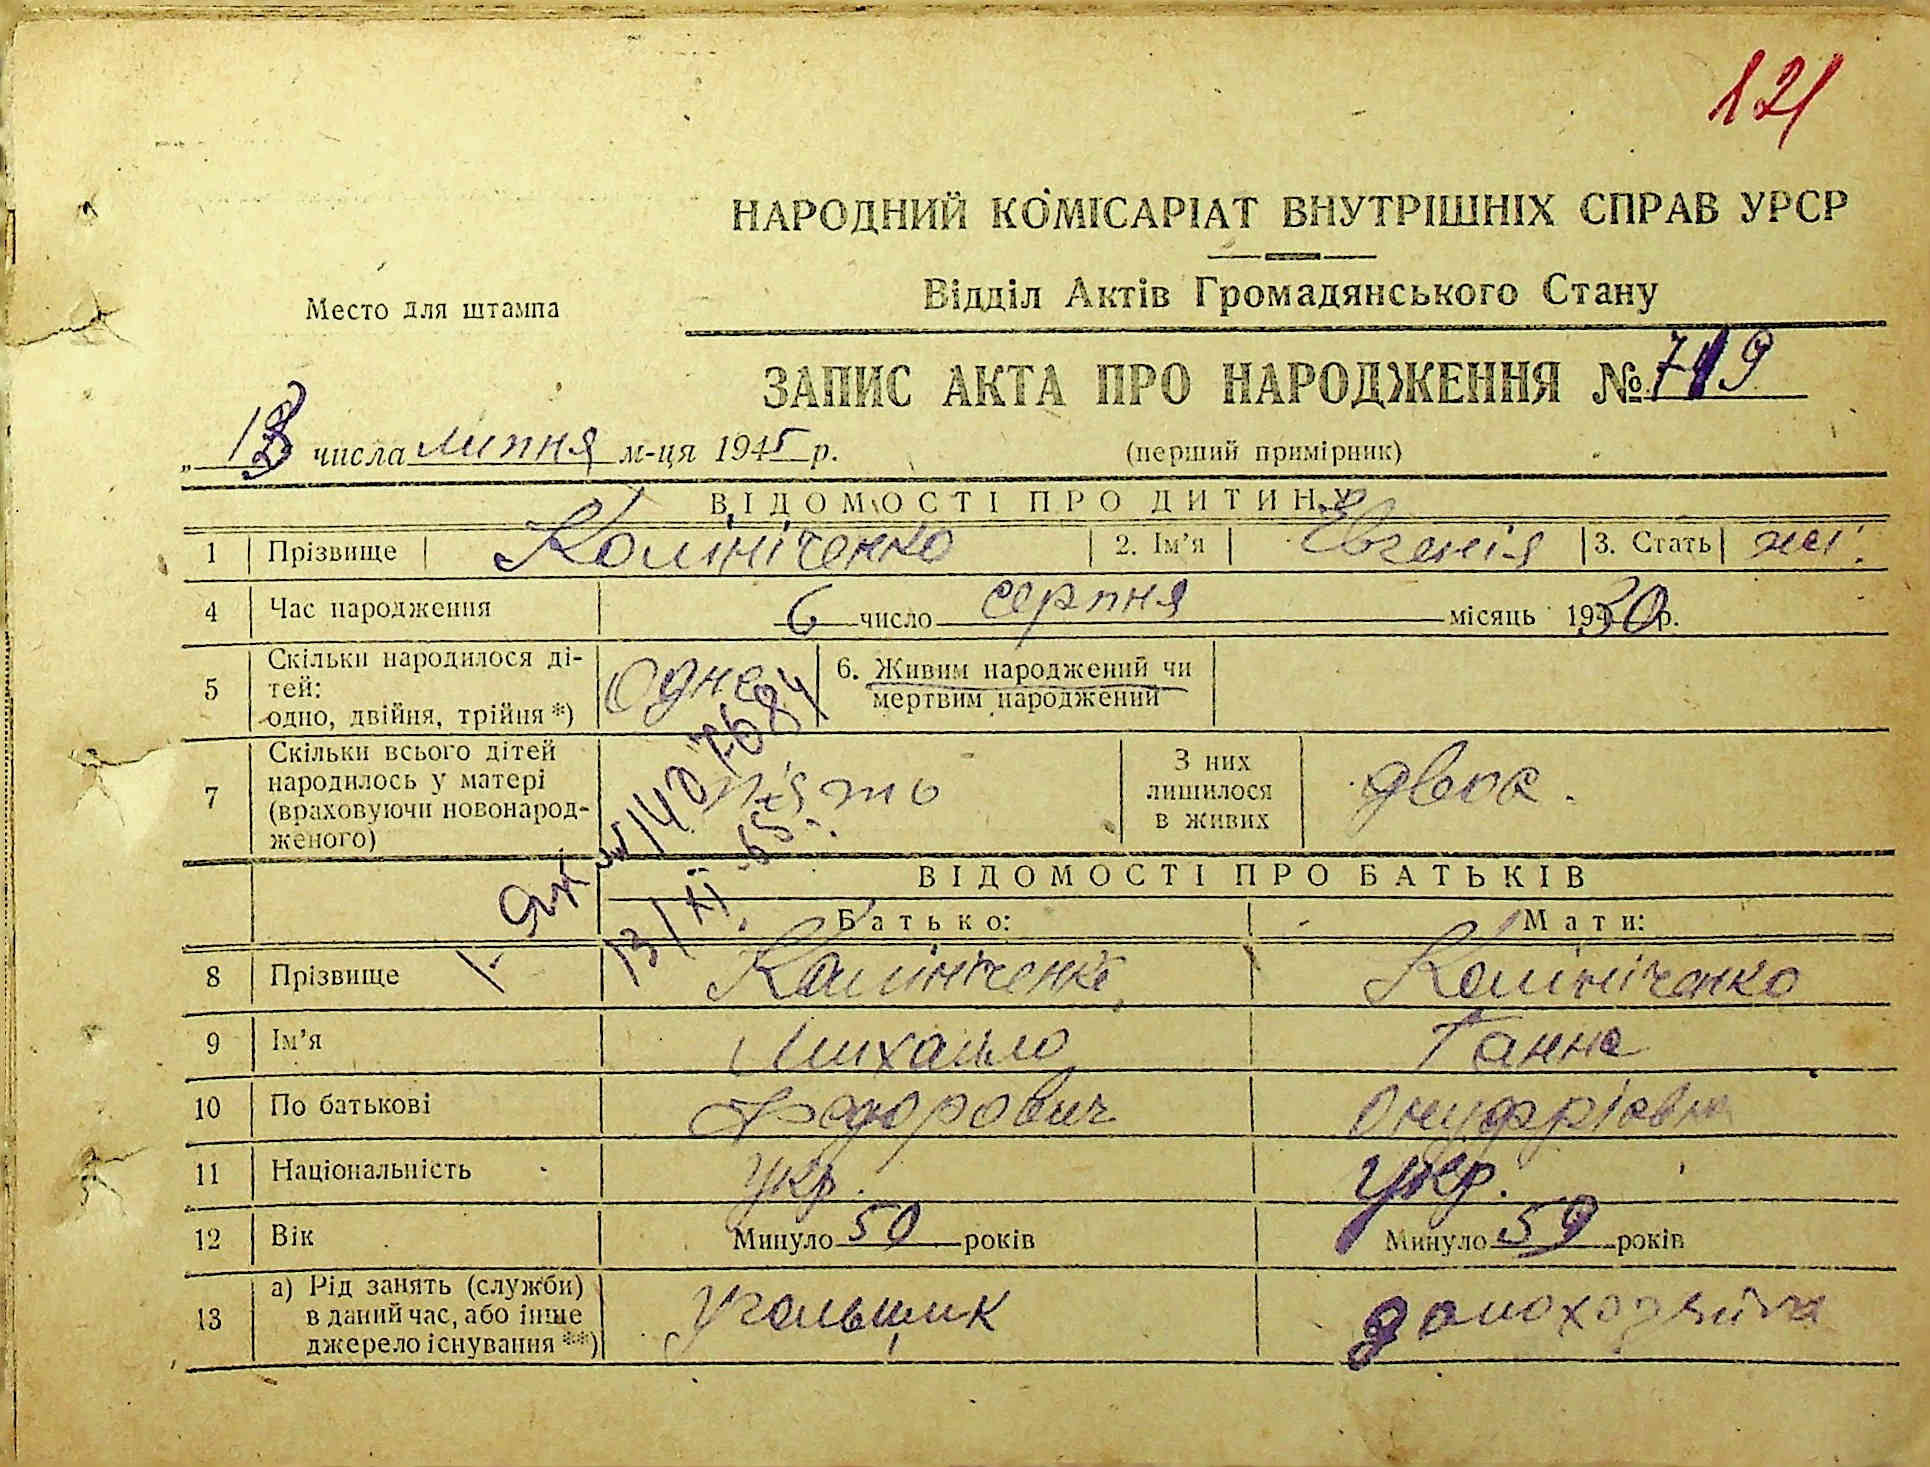 121
НАРОДНИЙ КОМІСАРІАТ ВНУТРІШНІХ СПРАВ УРСР
Відділ Актів Громадянського Стану
Место для штампа
ЗАПИС АКТА ПРО НАРОДЖЕННЯ № 719
„ 13 числа липня м-ця 1945 р. (перший примірник)
ВІДОМОСТІ ПРО ДИТИНУ
1 Прізвище Калініченко 2. Ім'я Євгенія 3. Стать жі.
4 Час народження 6 число серпня місяць 1930 р.
5 Скільки народилося ді-
тей:
одно, двійня, трійня *) Одне 6. Живим народжений чи
мертвим народжений
7 Скільки всього дітей
народилось у матері
(враховуючи новонарод-
женого) п'ять З них
лишилося
в живих двоє.
13/XI-65
ВІДОМОСТІ ПРО БАТЬКІВ
Батько: Мати:
8 Прізвище Калініченко Калініченко
9 Ім'я Михайло Ганна
10 По батькові Федорович Онуфріевна
11 Національність Укр. Укр.
12 Вік Минуло 50 років Минуло 59 років
13 а) Рід занять (служби)
в даний час, або інше
джерело існування **) Угольщик домохозяйка